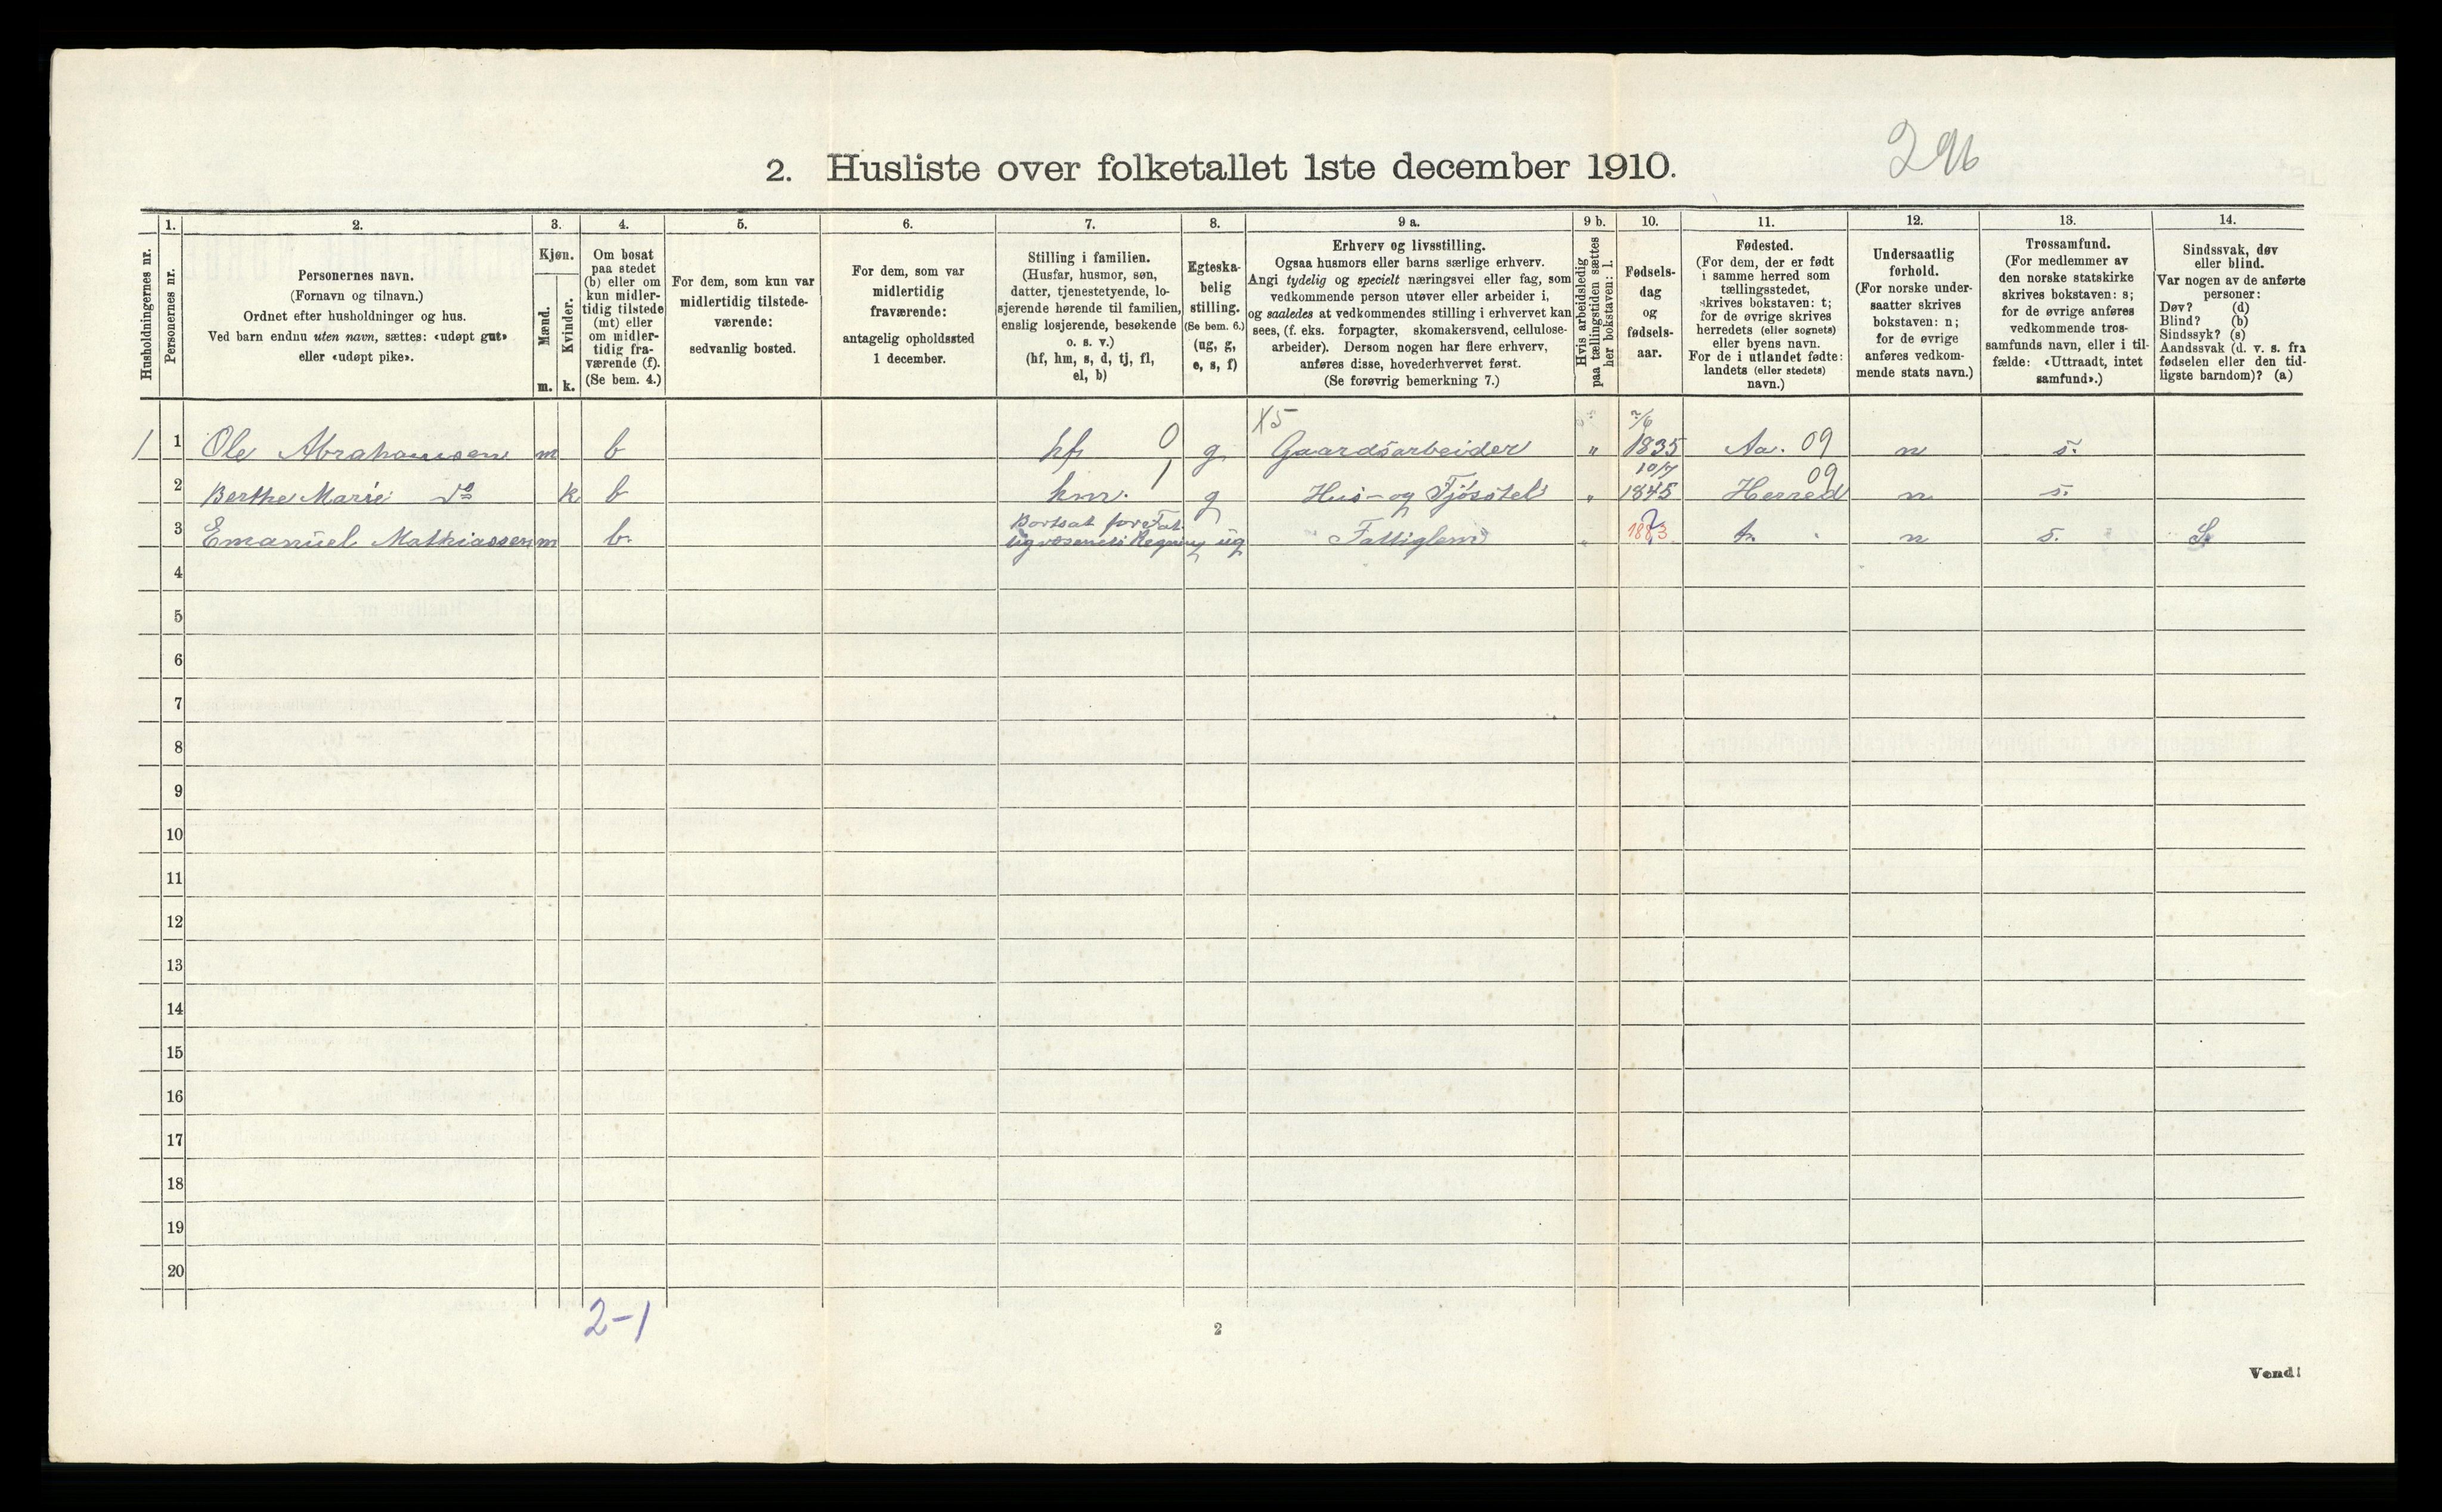 296
2. Husliste over folketallet 1ste december 1910.
Husholdningernes nr.
1.
Personernes nr.
2.
Personernes navn.
(Fornavn og tilnavn.)
Ordnet efter husholdninger og hus.
Ved barn endnu uten navn, sættes: «udøpt gut»
eller «udøpt pike».
3.
Kjøn.
Mænd.
Kvinder.
m. k.
4.
Om bosat
paa stedet
(b) eller om
kun midler-
tidig tilstede
(mt) eller
om midler-
tidig fra-
værende (f).
(Se bem. 4.)
5.
For dem, som kun var
midlertidig tilstede-
værende:
sedvanlig bosted.
6.
For dem, som var
midlertidig
fraværende:
antagelig opholdssted
1 december.
7.
Stilling i familien.
(Husfar, husmor, søn,
datter, tjenestetyende, lo-
sjerende hørende til familien,
enslig losjerende, besøkende
o. s. v.)
(hf, hm, s, d, tj, fl,
el, b)
8.
Egteska-
belig
stilling.
(Se bem. 6.)
(ug, g,
e, s, f)
9 a.
Erhverv og livsstilling.
Ogsaa husmors eller barns særlige erhverv.
Angi tydelig og specielt næringsvei eller fag, som
vedkommende person utøver eller arbeider i,
og saaledes at vedkommendes stilling i erhvervet kan
sees, (f. eks. forpagter, skomakersvend, cellulose-
arbeider). Dersom nogen har flere erhverv,
anføres disse, hovederhvervet først.
(Se forøvrig bemerkning 7.)
9 b.
Hvis arbeidsledig
paa tællingstiden sættes
her bokstaven: l.
10.
Fødsels-
dag
og
fødsels-
aar.
11.
Fødested.
(For dem, der er født
i samme herred som
tællingsstedet,
skrives bokstaven: t;
for de øvrige skrives
herredets (eller sognets)
eller byens navn.
For de i utlandet fødte:
landets (eller stedets)
navn.)
12.
Undersaatlig
forhold.
(For norske under-
saatter skrives
bokstaven: n;
for de øvrige
anføres vedkom-
mende stats navn.)
13.
Trossamfund.
(For medlemmer av
den norske statskirke
skrives bokstaven: s;
for de øvrige anføres
vedkommende tros-
samfunds navn, eller i til-
fælde: «Uttraadt, intet
samfund».)
14.
Sindssvak, døv
eller blind.
Var nogen av de anførte
personer:
Døv? (d)
Blind? (b)
Sindssyk? (s)
Aandssvak (d. v. s. fra
fødselen eller den tid-
ligste barndom)? (a)
X5
1 1 Ole Abrahamsen m b hf 0 g Gaardsarbeider " 7/6 1835 Aa. 09 n s.
2 Berthe Marie do k b hm. 1 g Hus- og Fjøsstel " 10/7 1845 Herred 09 n s.
3 Emanuel Mathiassen m b. Bortsat for Fat-
tigvæsenets Regning ug Fattiglem " 1883 ? t. n s. S.
4
5
6
7
8
9
10
11
12
13
14
15
16
17
18
19
20
2-1
2
Vend!